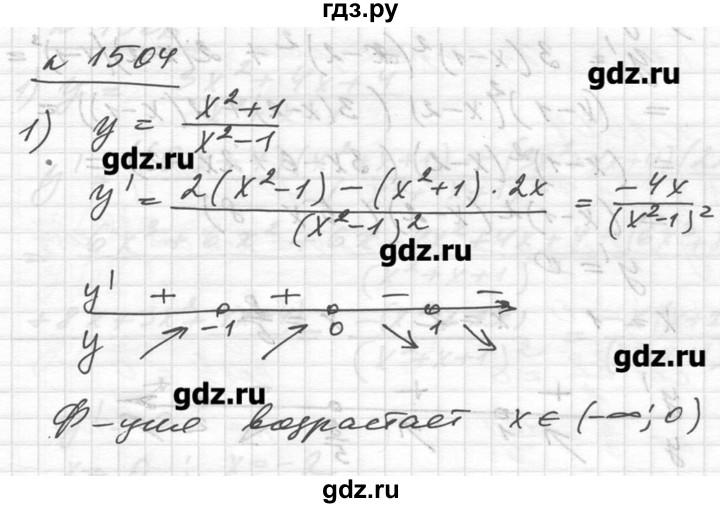 гдз.ру
№ 1504
gdz.ru
1) y = x²+1 / x²-1
gdz.ru
y' = 2(x²-1) - (x²+1)·2x / (x²-1)² = -4x / (x²-1)²
gdz.ru
y' + + - -
-1 0 1
y
gdz.ru
gdz.ru
Ф-ция возрастает x ∈ (-∞; 0)
gdz.ru